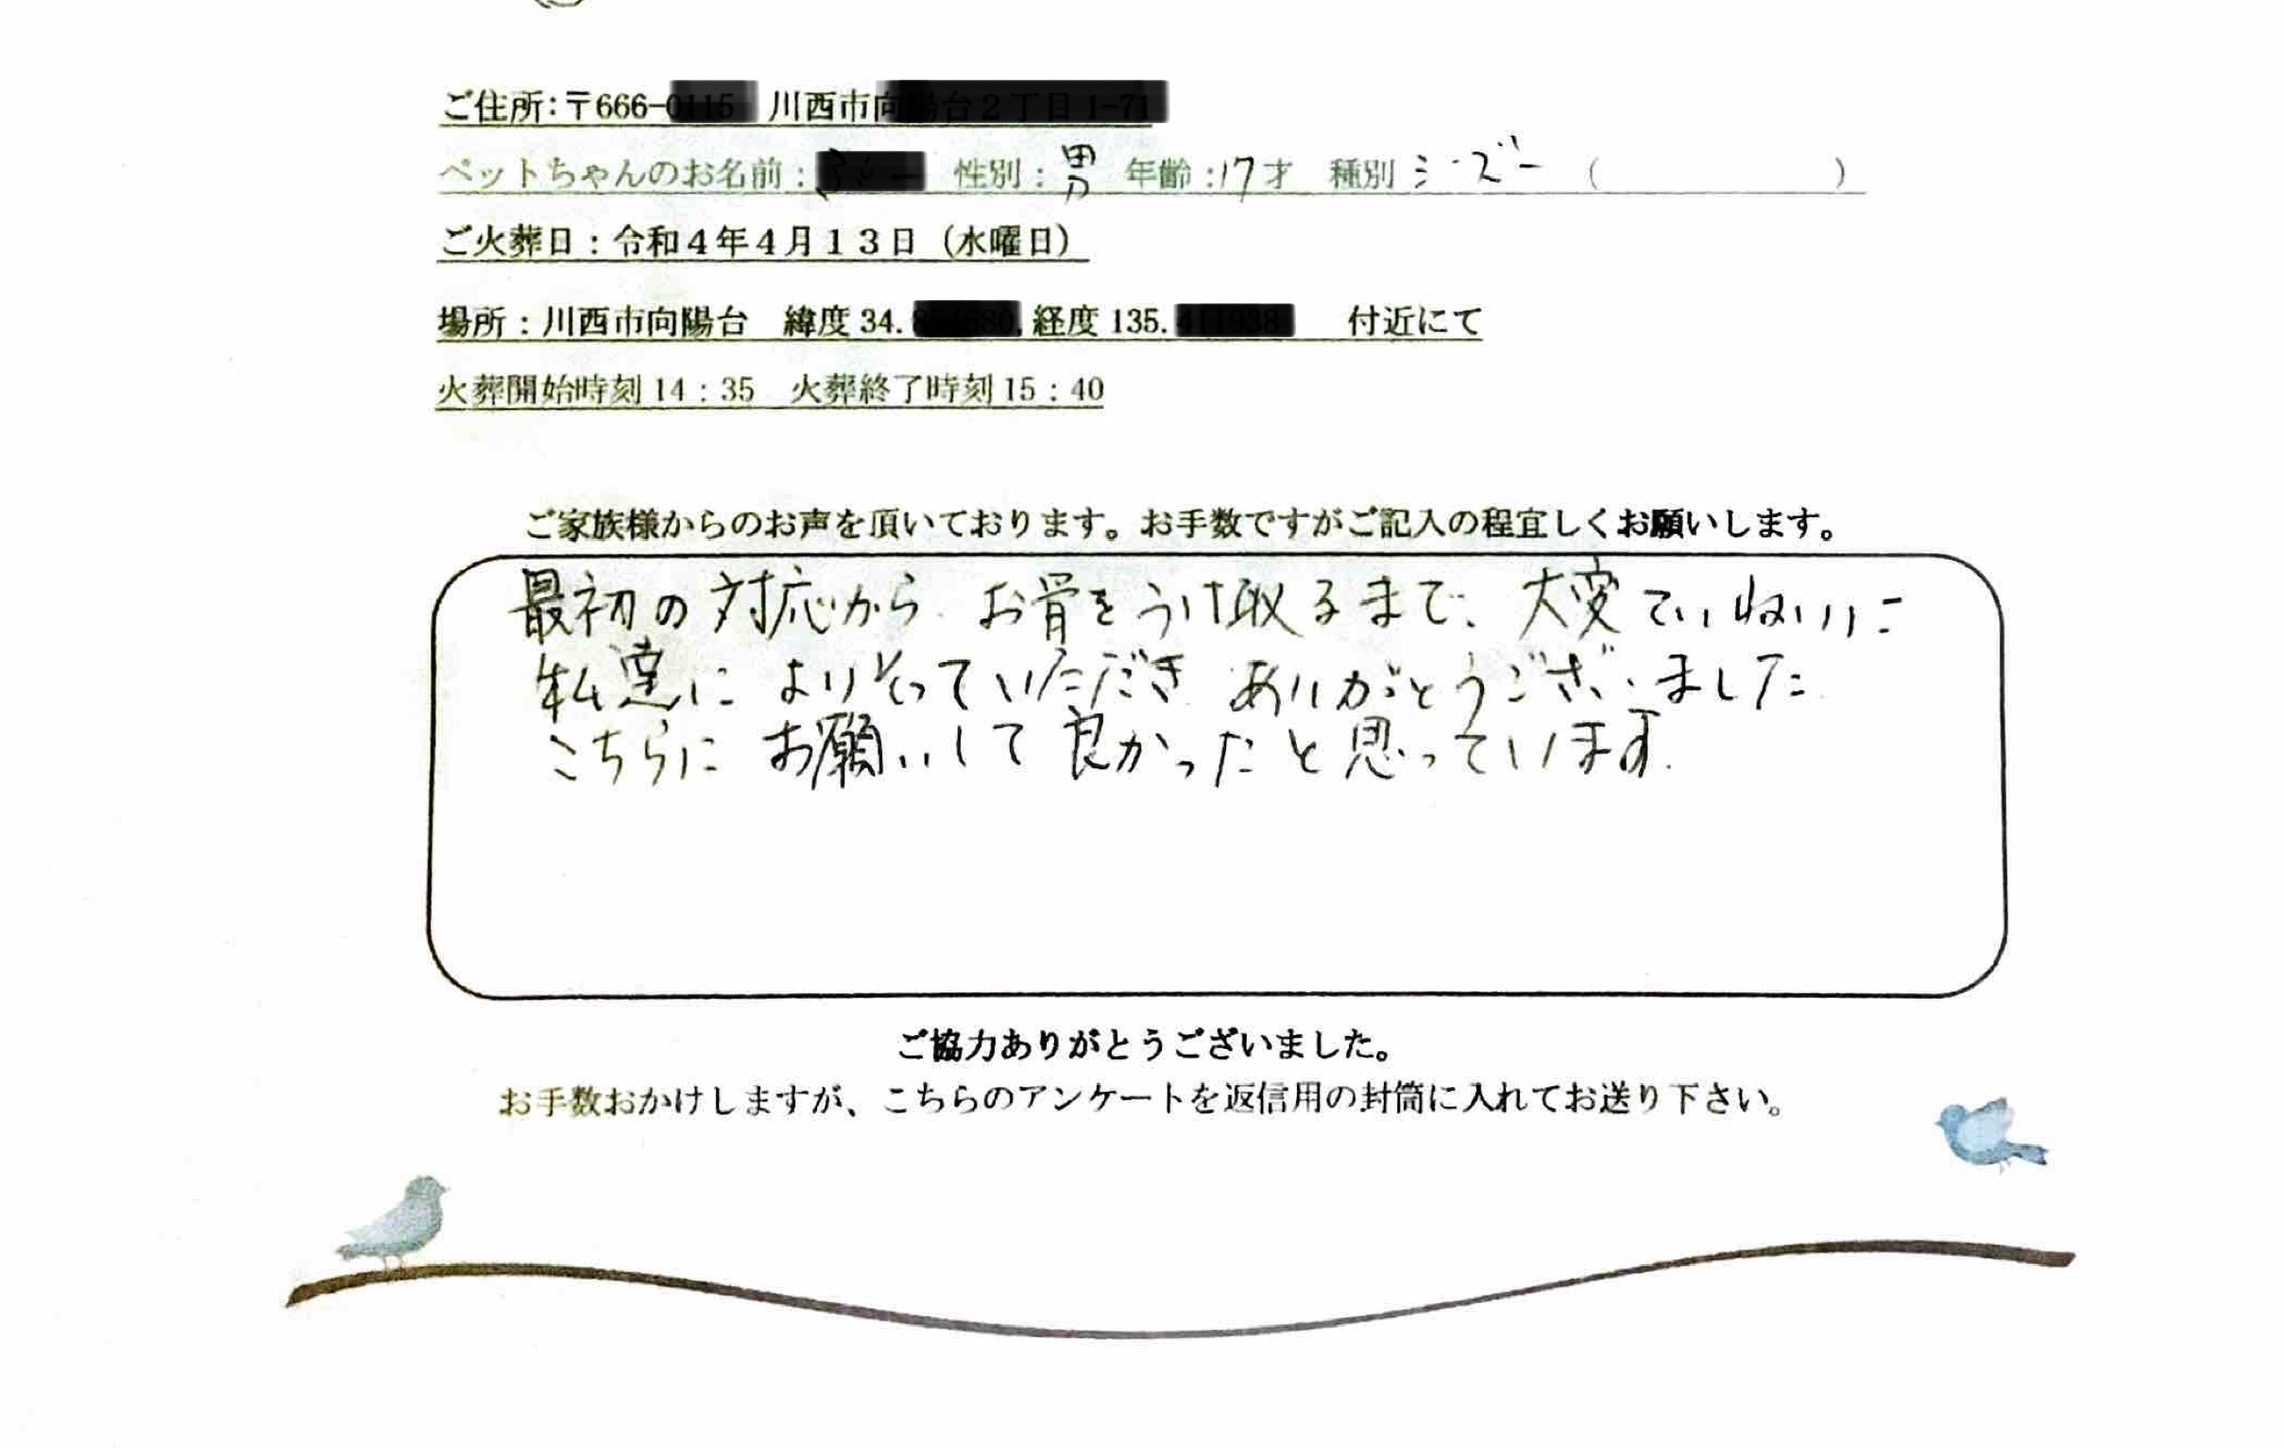 ご住所：〒666- 川西市向
ペットちゃんのお名前： 性別：男 年齢：17才 種別 シーズー （ ）
ご火葬日：令和４年４月１３日（水曜日）
場所：川西市向陽台 緯度34. 経度135. 付近にて
火葬開始時刻14：35 火葬終了時刻15：40
ご家族様からのお声を頂いております。お手数ですがご記入の程宜しくお願いします。
最初の対応から お骨をうけ取るまで、大変ていねいに
私達に よりそっていただき ありがとうございました
こちらに お願いして 良かったと思っています.
ご協力ありがとうございました。
お手数おかけしますが、こちらのアンケートを返信用の封筒に入れてお送り下さい。